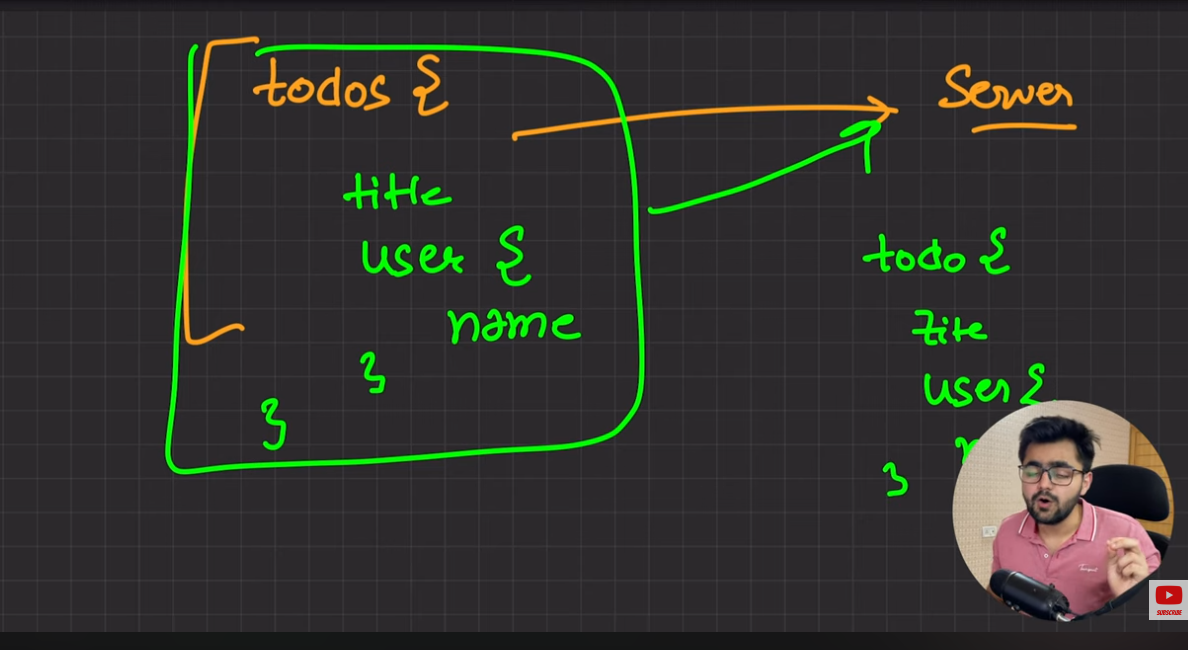 todos {
title
user {
name
}
}
Server
todo {
title
user {
}
SUBSCRIBE